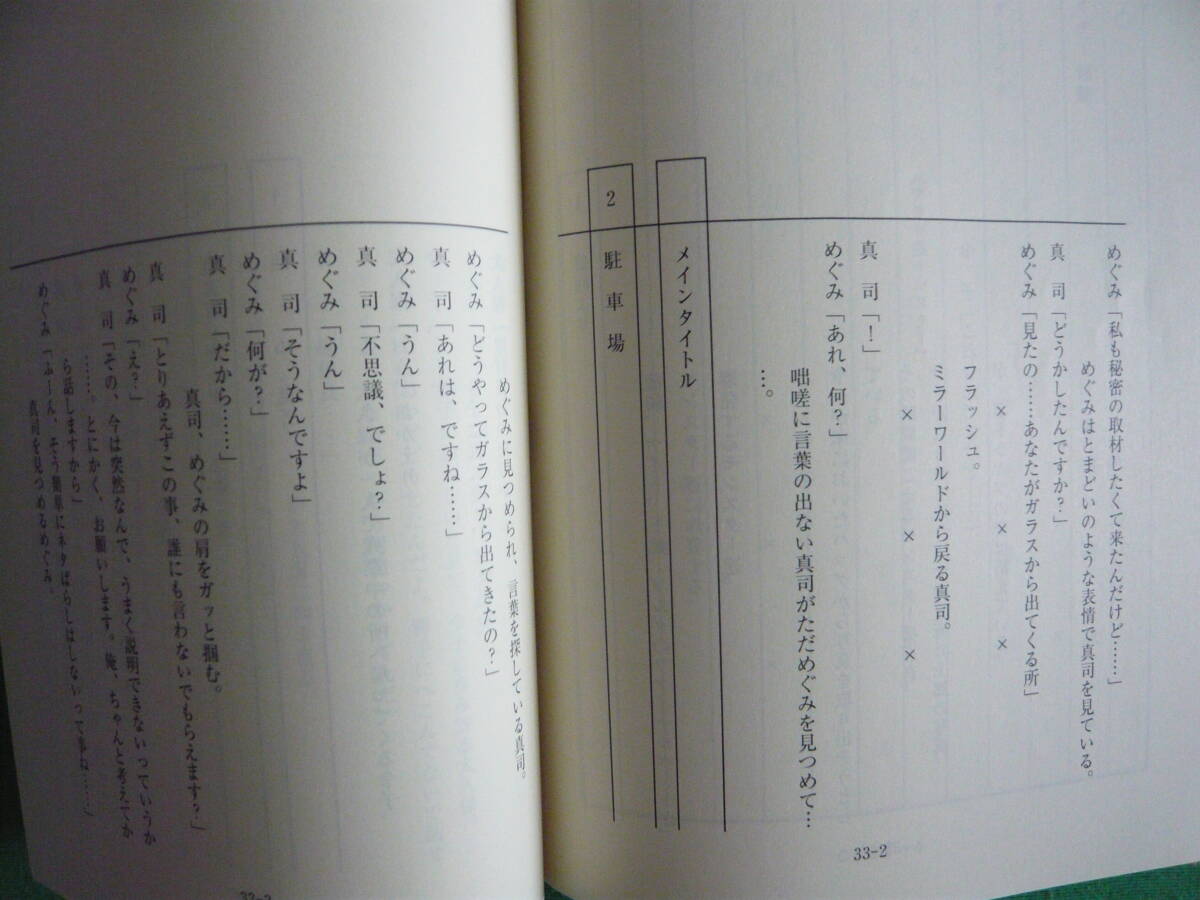 めぐみ「私も秘密の取材したくて来たんだけど……」
めぐみはとまどいのような表情で真司を見ている。
真　司「どうかしたんですか？」
めぐみ「見たの……あなたがガラスから出てくる所」
×　×　×
フラッシュ。
ミラーワールドから戻る真司。
×　×　×
真　司「！」
めぐみ「あれ、何？」
咄嗟に言葉の出ない真司がただめぐみを見つめて…
…。
メインタイトル
2　駐車場
33-2
めぐみに見つめられ、言葉を探している真司。
めぐみ「どうやってガラスから出てきたの？」
真　司「あれは、ですね……」
めぐみ「うん」
真　司「不思議、でしょ？」
めぐみ「うん」
真　司「そうなんですよ」
めぐみ「何が？」
真　司「だから……」
真司、めぐみの肩をガッと掴む。
真　司「とりあえずこの事、誰にも言わないでもらえます？」
めぐみ「え？」
真　司「その、今は突然なんで、うまく説明できないっていうか
……。とにかく、お願いします。俺、ちゃんと考えてか
ら話しますから」
めぐみ「ふーん、そう簡単にネタばらしはしないって事ね……」
真司を見つめるめぐみ。